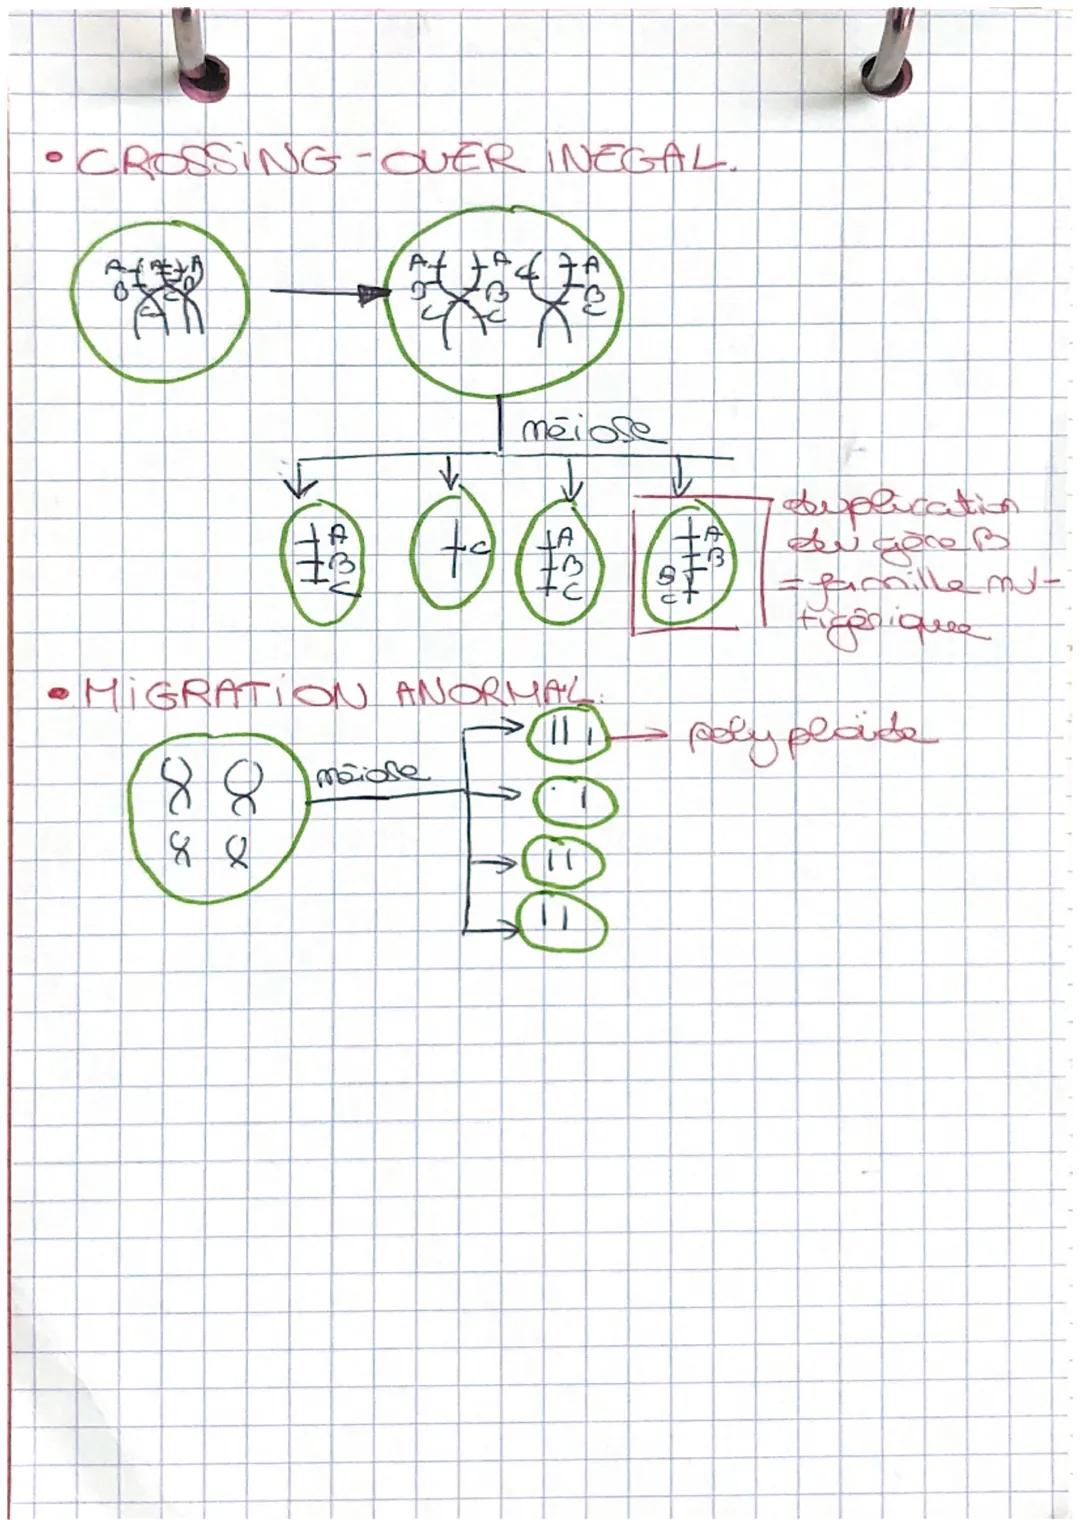 • CROSSING-OVER INEGAL.
A A A
B B
C C
A A C A
B B B
C C C
méiose
A C A A
B B B
C C B
C
duplication
du gène B
= famille mul-
tigénique
• MIGRATION ANORMAL:
méiose
polyploïde